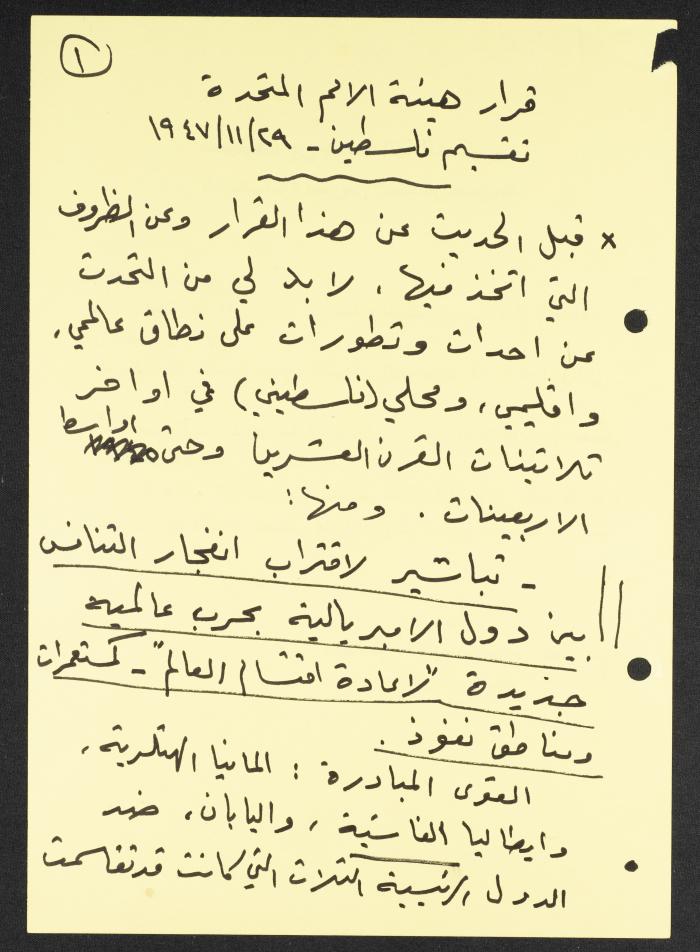 ١
قرار هيئة الامم المتحدة
تقسيم فلسطين - ١٩٤٧/١١/٢٩
* قبل الحديث عن هذا القرار وعن الظروف
التي اتخذ فيها، لا بد لي من التحدث
عن احداث وتطورات على نطاق عالمي،
واقليمي، ومحلي (فلسطيني) في اواخر
ثلاثينات القرن العشرين وحتى اواسط
الاربعينات. ومنها:
- تباشير لاقتراب انفجار التنافس
بين دول الامبريالية بحرب عالمية
جديدة "لاعادة اقتسام العالم" - كمستعمرات
ومناطق نفوذ.
القوى المبادرة: المانيا الهتلرية،
وايطاليا الفاشية، واليابان، ضد
الدول الرئيسية الثلاث التي كانت قد تقاسمت